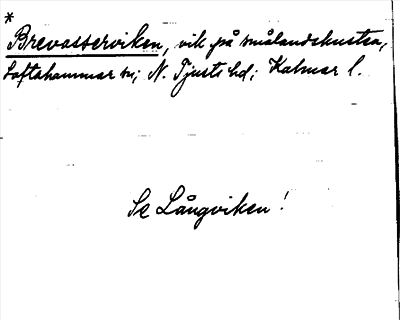 *
Brevasserviken, vik på smålandskusten,
Loftahammar sn; N. Tjusts hd; Kalmar l.
Se Långviken!